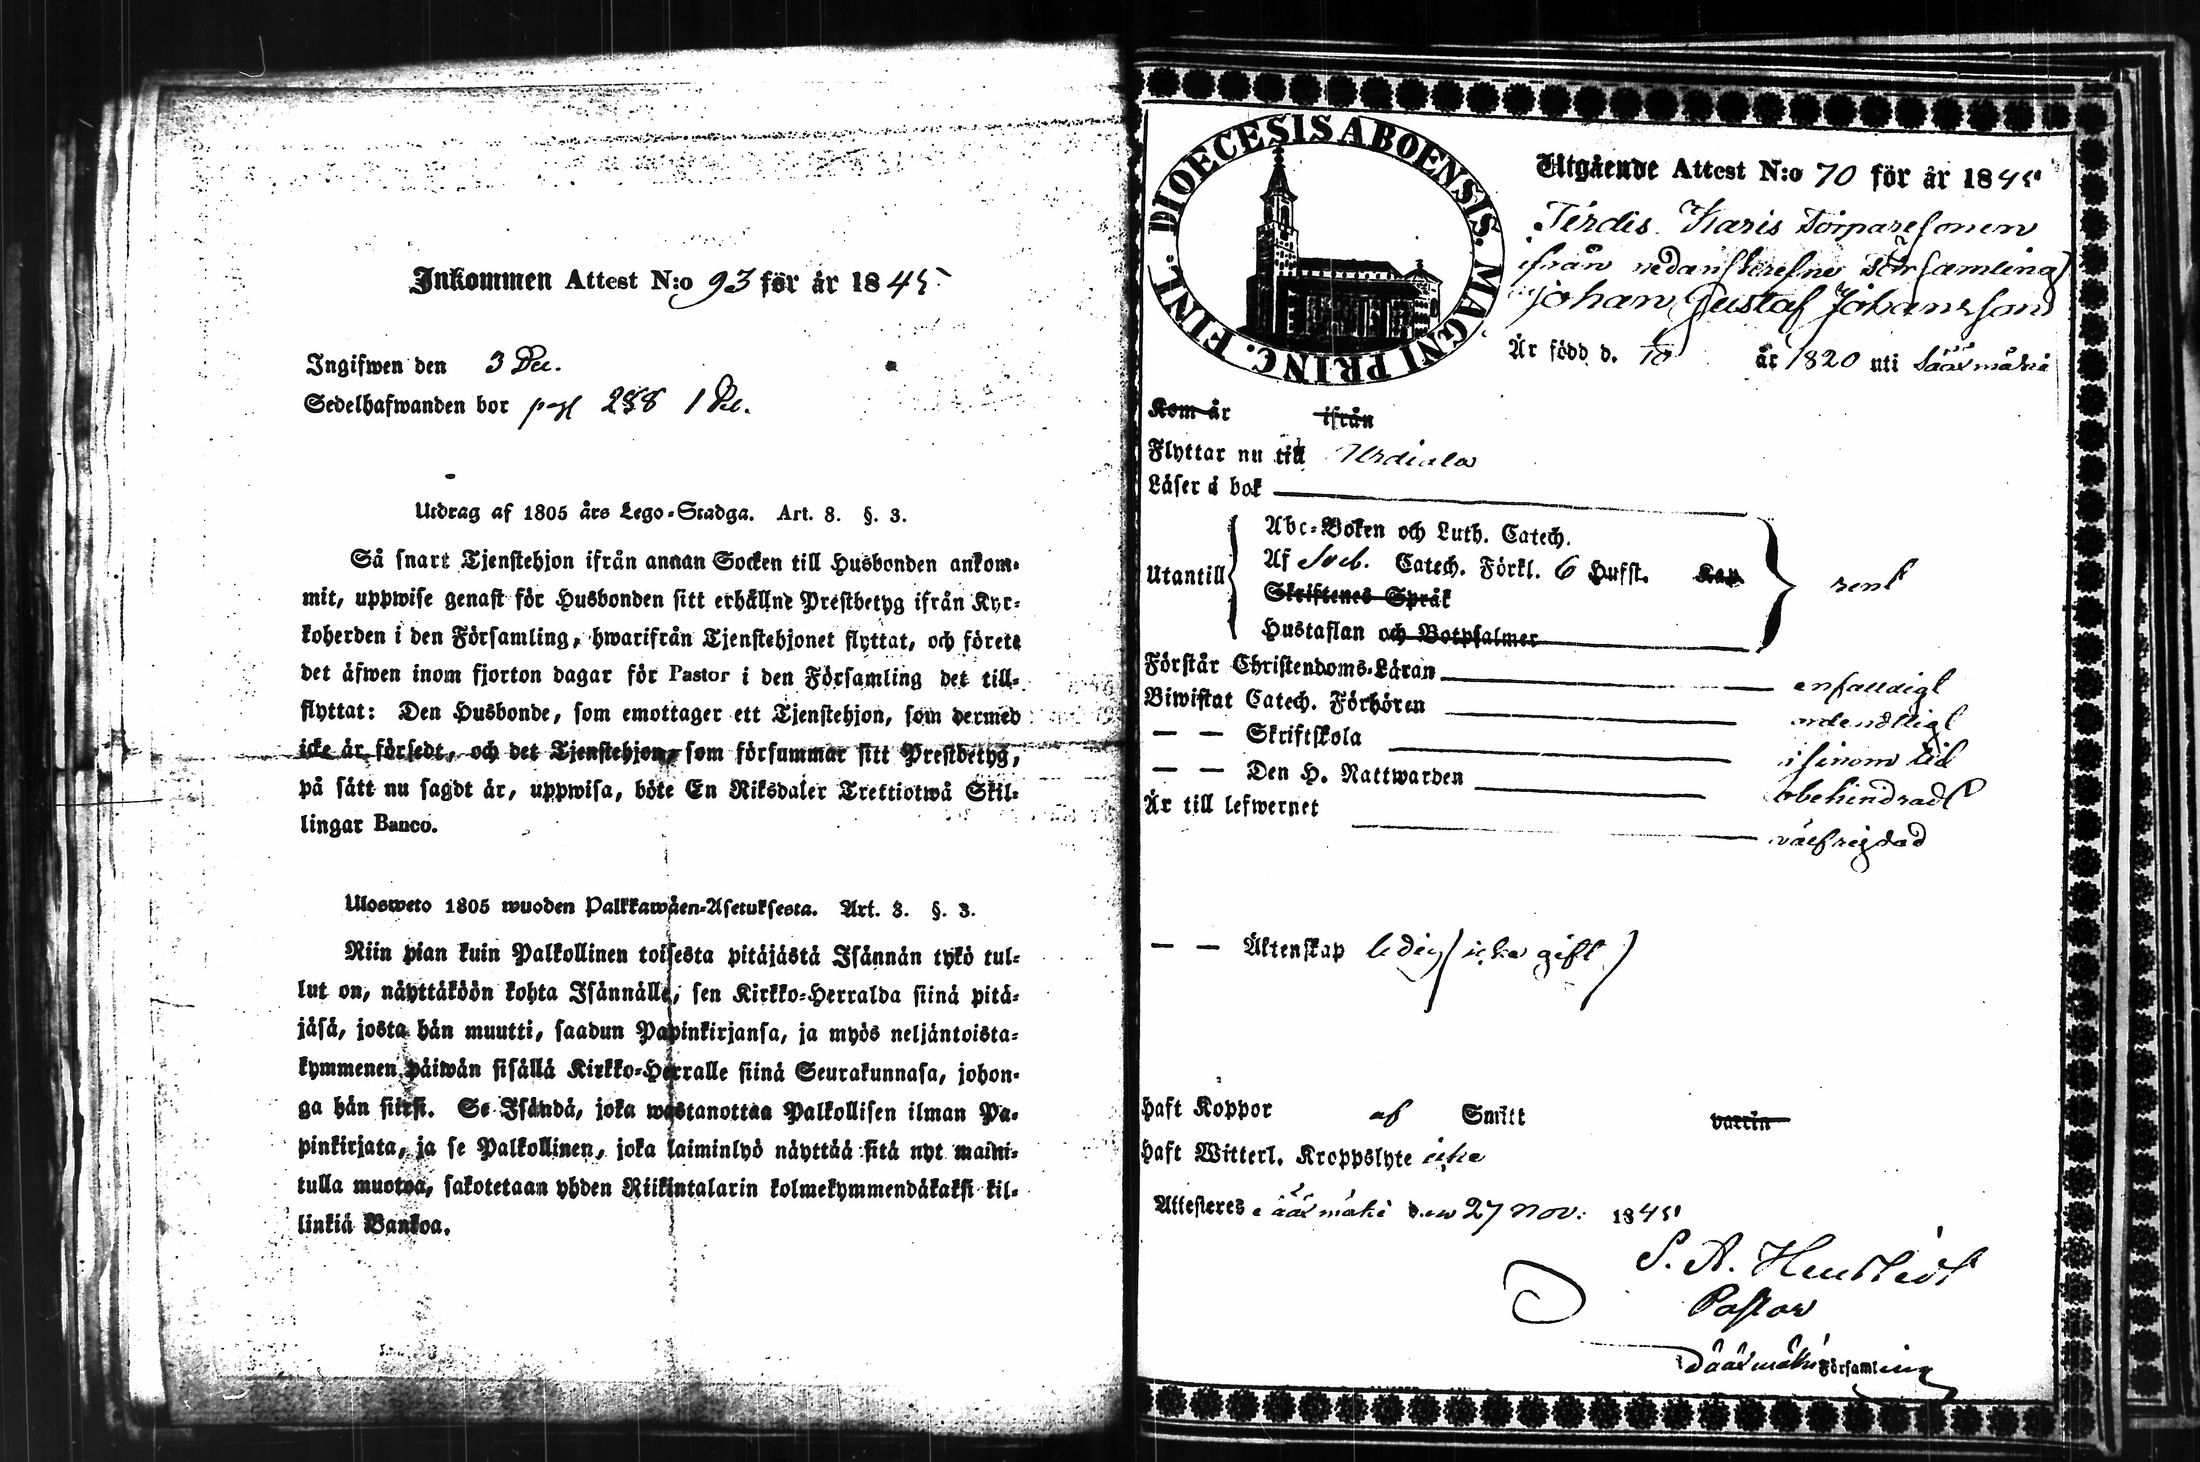 Inkommen Attest N:o 93 för år 1845
Ingifwen den 3 Dec.
Sedelhafwanden bor pag 288 1 Del.
Utdrag af 1805 års Lego-Stadga. Art. 8. §. 3.
Så snart Tjenstehjon ifrån annan Socken till Husbonden ankom-
mit, uppwise genast för Husbonden sitt erhållne Prestbetyg ifrån Kyr-
koherden i den Församling, hwarifrån Tjenstehjonet flyttat, och förete
det äfwen inom fjorton dagar för Pastor i den Församling det till-
flyttat: Den Husbonde, som emottager ett Tjenstehjon, som dermed
icke är försedt, och det Tjenstehjon, som försummar sitt Prestbetyg,
på sätt nu sagdt är, uppwisa, böte En Riksdaler Trettiotwå Skil-
lingar Banco.
Ulosweto 1805 wuoden Palkkawäen-Asetuksesta. Art. 8. §. 3.
Niin pian kuin Palkollinen toisesta pitäjästä Isännän tykö tul-
lut on, näyttäköön kohta Isännälle, sen Kirkko-Herralda siinä pitä-
jäsä, josta hän muutti, saadun Papinkirjansa, ja myös neljäntoista-
kymmenen päiwän sisällä Kirkko-Herralle siinä Seurakunnasa, johon-
ga hän siirsi. Se Isändä, joka wastanottaa Palkollisen ilman Pa-
pinkirjata, ja se Palkollinen, joka laiminlyö näyttää sitä nyt maini-
tulla muotoa, sakotetaan yhden Riikintalarin kolmekymmendäkaksi kil-
linkiä Bankoa.
DIOECESIS ABOENSIS. MAGNI PRINC. FINL.
Utgående Attest N:o 70 för år 1845
Torparesonen
ifrån nedanskrefne Församling
Johan Gustaf Johansson
Är född d. 10 år 1820 uti Sääxmäki
Kom år ifrån
Flyttar nu till Urdiala
Läser i bok
Utantill
Abc-Boken och Luth. Catech.
Af Sveb. Catech. Förkl. 6 Hufst. Kap
Skriftenes Språk
Hustaflan och Botpsalmer
rent
Förstår Christendoms-Läran enfaldigt
Biwistat Catech. Förhören ordentligt
— — Skriftskola i sinom tid
— — Den H. Nattwarden obehindradt
Är till lefwernet välfrejdad
— — Äktenskap ledig (icke gift)
Haft Koppor af Smitt vaccin
Haft Witterl. Kroppslyte icke
Attesteres Sääxmäki den 27 Nov. 1845
Pastor
Sääxmäki Församling